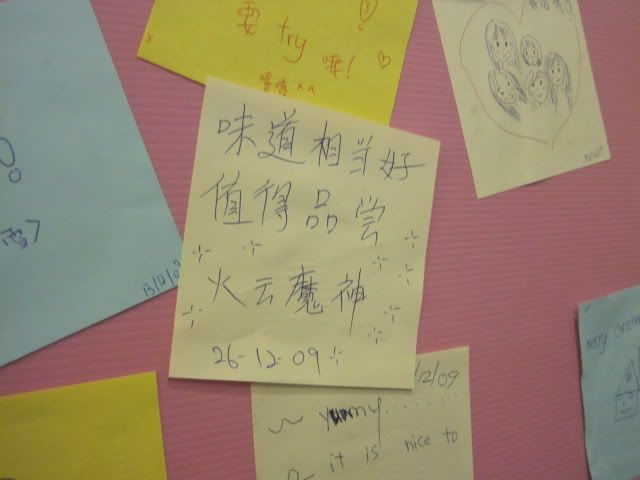 要
try
喔!
味道相当好
值得品尝
火云魔神
26-12-09
13/12/09
/12/09
~ yummy......
it is nice to
merry christm